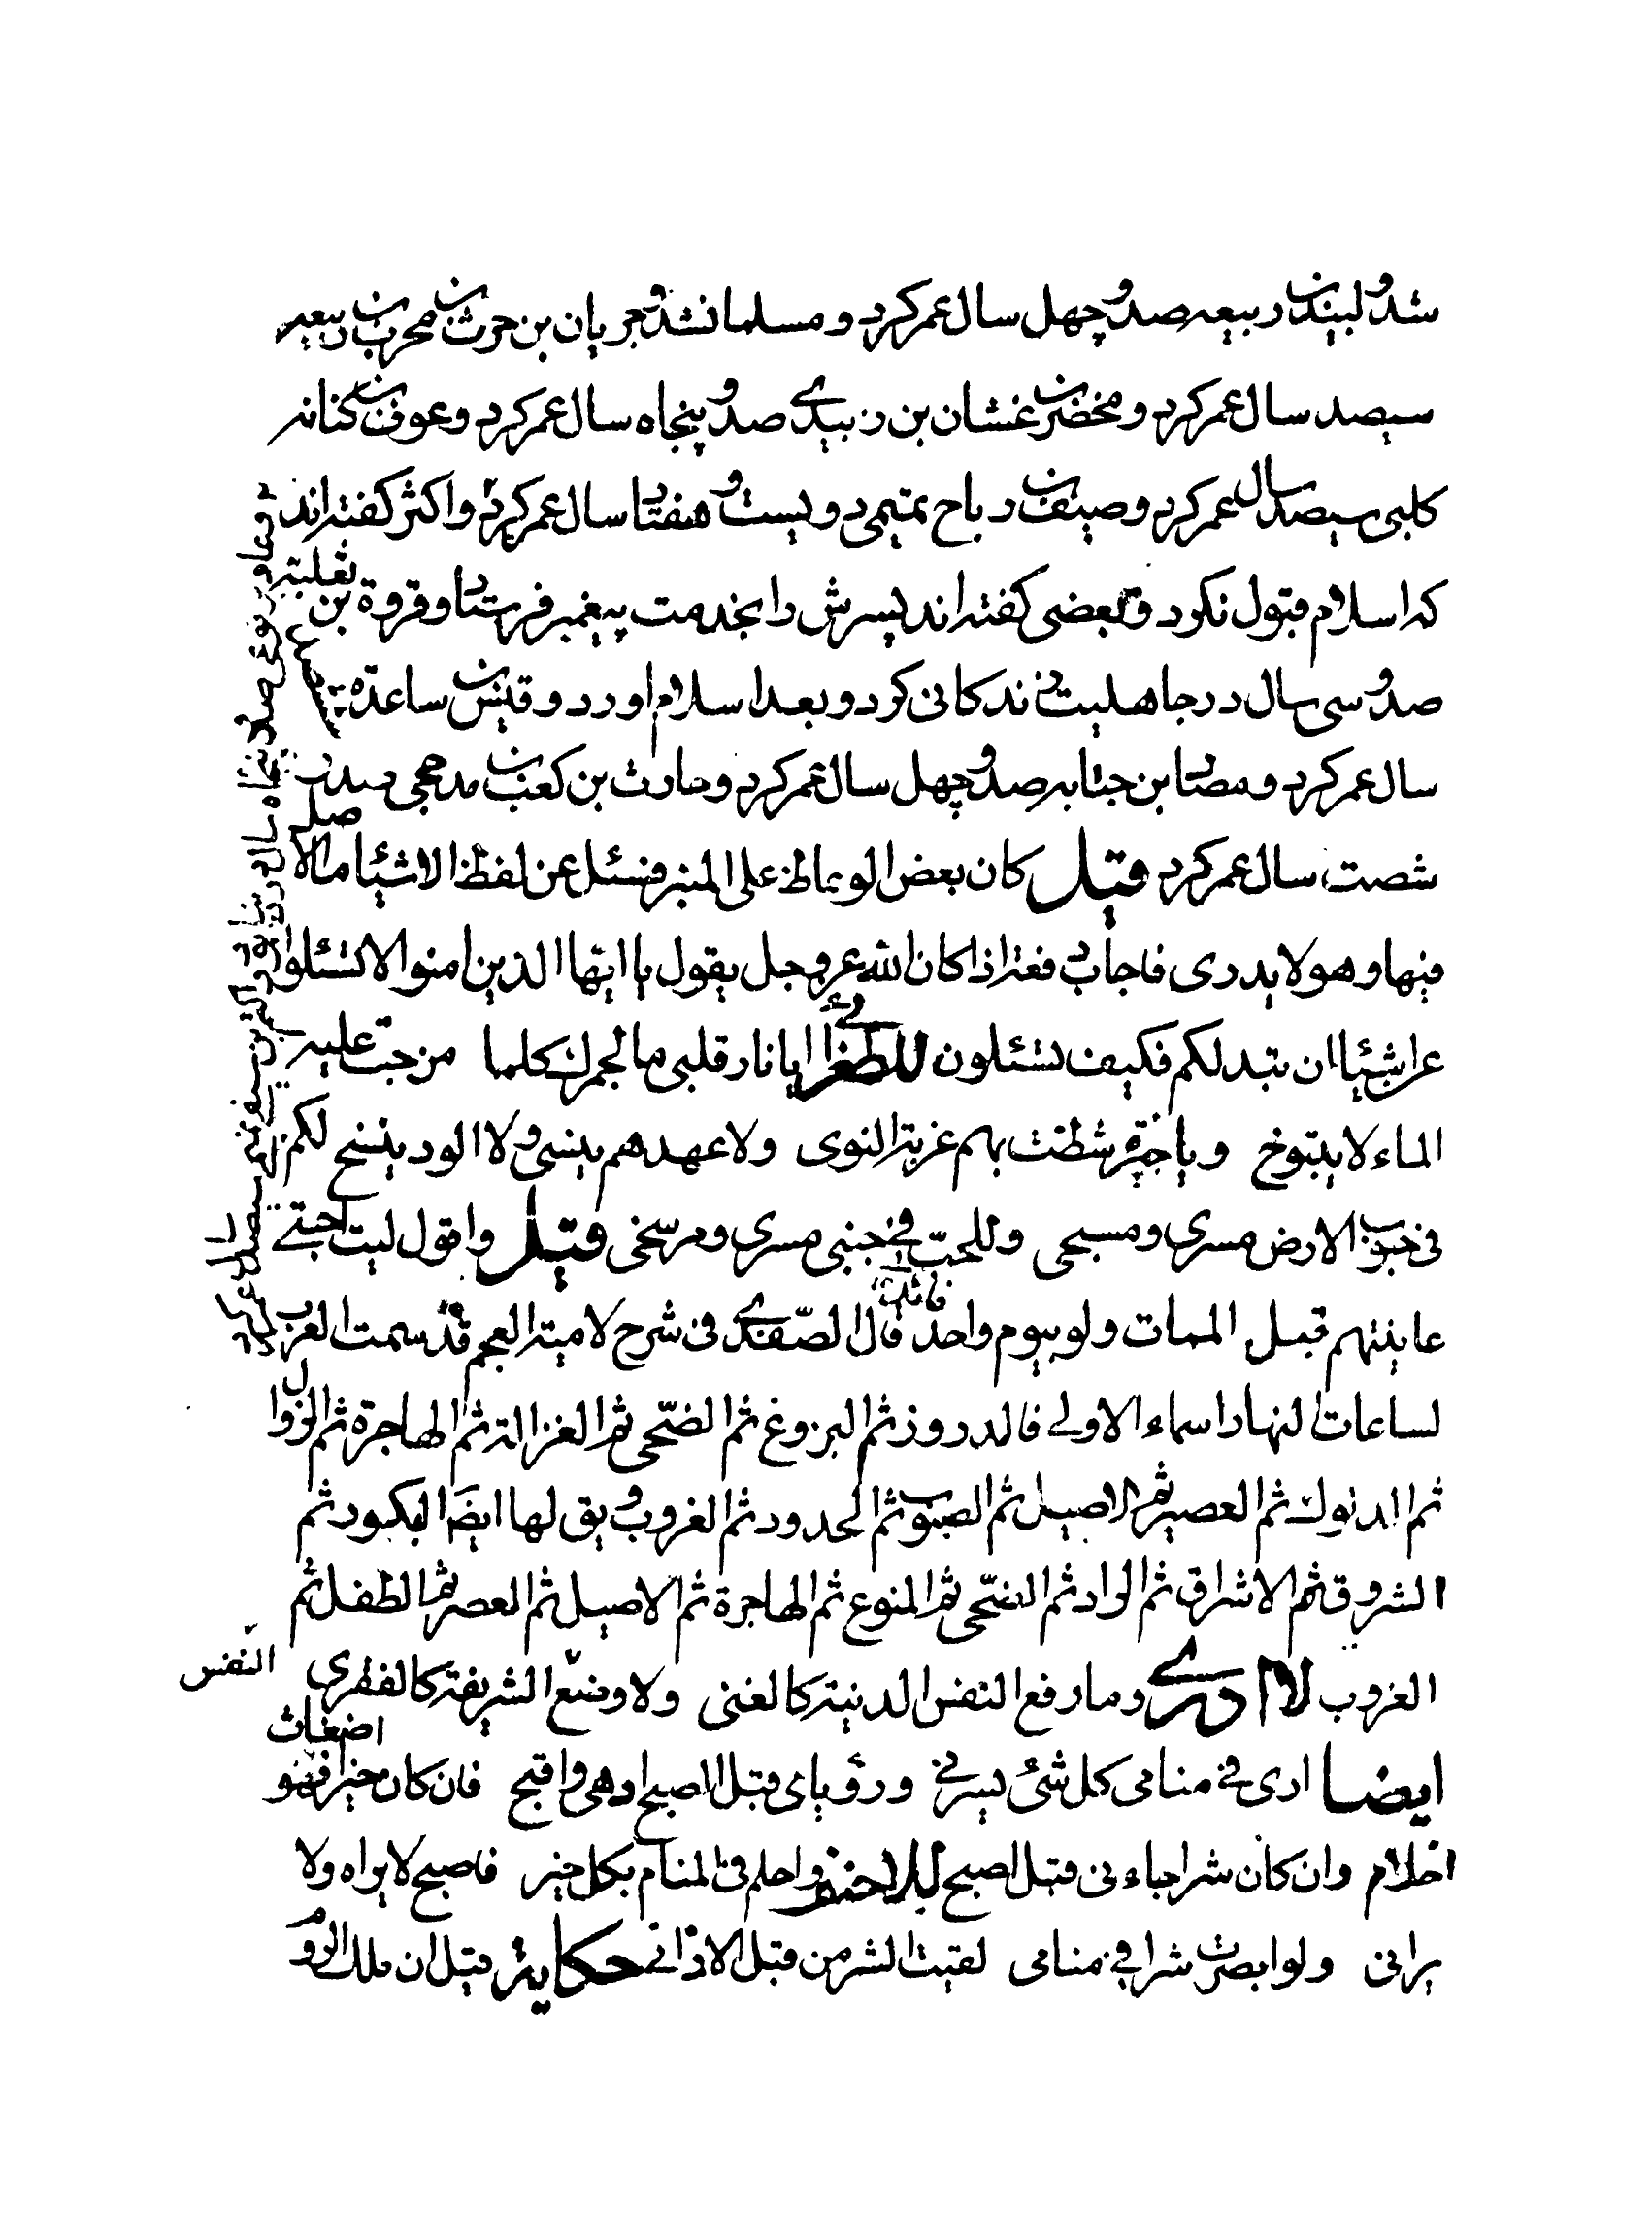 شد و لبید بن ربیعه صد و چهل سال عمر کرد و مسلمان شد و جریان بن حرث بن محرب بن ربیعه
سیصد سال عمر کرد و محضر بن غشان بن زبیدی صد و پنجاه سال عمر کرد و عوف بن کنانه
کلبی سیصد سال عمر کرد و صیف بن رباح تمیمی دویست و هفتاد سال عمر کرد و اکثر گفته‌اند
که اسلام قبول نکرد و بعضی گفته‌اند پسرش را بخدمت پیغمبر فرستاد و قروة بن ثعلبیة
صد و سی سال در جاهلیت زندکانی کرد و بعد اسلام اورد و قیس بن ساعده
سال عمر کرد و مصاد بن جنابه صد و چهل سال عمر کرد و حارث بن کعب بن مذحجی صد
شصت سال عمر کرد قیل کان بعض الوعاظ علی المنبر فسئل عن لفظ الاشیاء ما اصله
فیها و هو لا یدری فاجاب فقه اذا کان الله عز و جل یقول یا ایها الذین امنوا لا تسئلوا
عن اشیاء ان تبد لکم فکیف تسئلون للطغرائی ایا نار قلبی ما لجمرک کلما من جت علیه
الماء لا یتبوخ و یا جیرة شطت بهم غربة النوی ولا عهدهم ینسی ولا الود ینسخ لکم
فی جنوب الارض مسری و مسبحی وللحب فی جنبی مسری و مرسخی قیل واقول لیت احبتی
عاینتهم قبل الممات ولو بیوم واحد فائدة قال الصفدی فی شرح لامیة العجم قد سمت العرب
لساعات النهار اسماء الاولی فالدرور ثم البزوغ ثم الضحی ثم الغزالة ثم الهاجرة ثم الزوال
ثم الدلوک ثم العصر ثم الاصیل ثم الصبوب ثم الحدود ثم الغروب و یق لها ایضا البکور ثم
الشروق ثم الاشراق ثم الراد ثم الضحی ثم المتوع ثم الهاجرة ثم الاصیل ثم العصر ثم الطفل ثم
الغروب لا ادری و ما رفع النفس الدنیة کالغنی ولا وضع النفس الشریفة کالفقر
ایضا اری فی منامی کل شئ یسرنی و رؤیای قبل الصبح ادهی و اقبح فان کان خیرا فهو اضغاث
احلام و ان کان شرا جاءنی قبل اصبح للاحنف واحلم فی المنام بکل خیر فاصبح لا یراه ولا
یرانی ولو ابصرت شرا فی منامی لقیت الشر من قبل الاذانی حکایة قیل ان ملک الروم